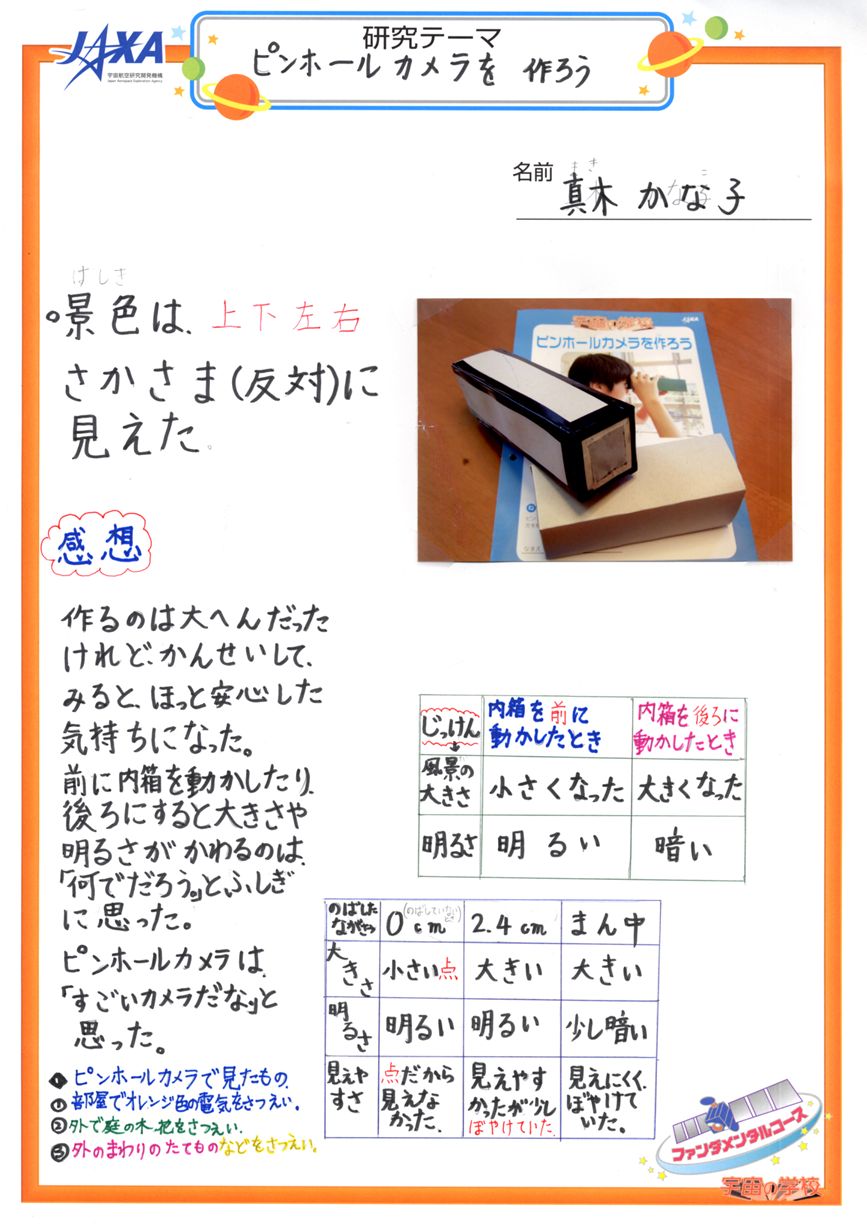 JAXA
宇宙航空研究開発機構
Japan Aerospace Exploration Agency
研究テーマ
ピンホールカメラを 作ろう
名前
まき こ
真木 かな子
けしき
景色は、上下左右
さかさま(反対)に
見えた。
宇宙の学校
JAXA
ピンホールカメラを作ろう
感想
作るのは大へんだった
けれど、かんせいして、
みると、ほっと安心した
気持ちになった。
前に内箱を動かしたり、
後ろにすると大きさや
明るさが かわるのは、
「何でだろう。」と、ふしぎ
に思った。
ピンホールカメラは、
「すごいカメラだな。」と
思った。
じっけん
内箱を前に
動かしたとき
内箱を後ろに
動かしたとき
風景の
大きさ
小さくなった
大きくなった
明るさ
明るい
暗い
のばした
ながさ
0cm
(のばしていないとき)
2.4cm
まん中
大きさ
小さい点
大きい
大きい
明るさ
明るい
明るい
少し暗い
見えや
すさ
点だから
見えな
かった。
見えやす
かったが少し
ぼやけていた。
見えにくく、
ぼやけて
いた。
ピンホールカメラで見たもの、
① 部屋でオレンジ色の電気をさつえい。
② 外で庭の木、花をさつえい。
③ 外のまわりのたてものなどをさつえい。
ファンダメンタルコース
宇宙の学校